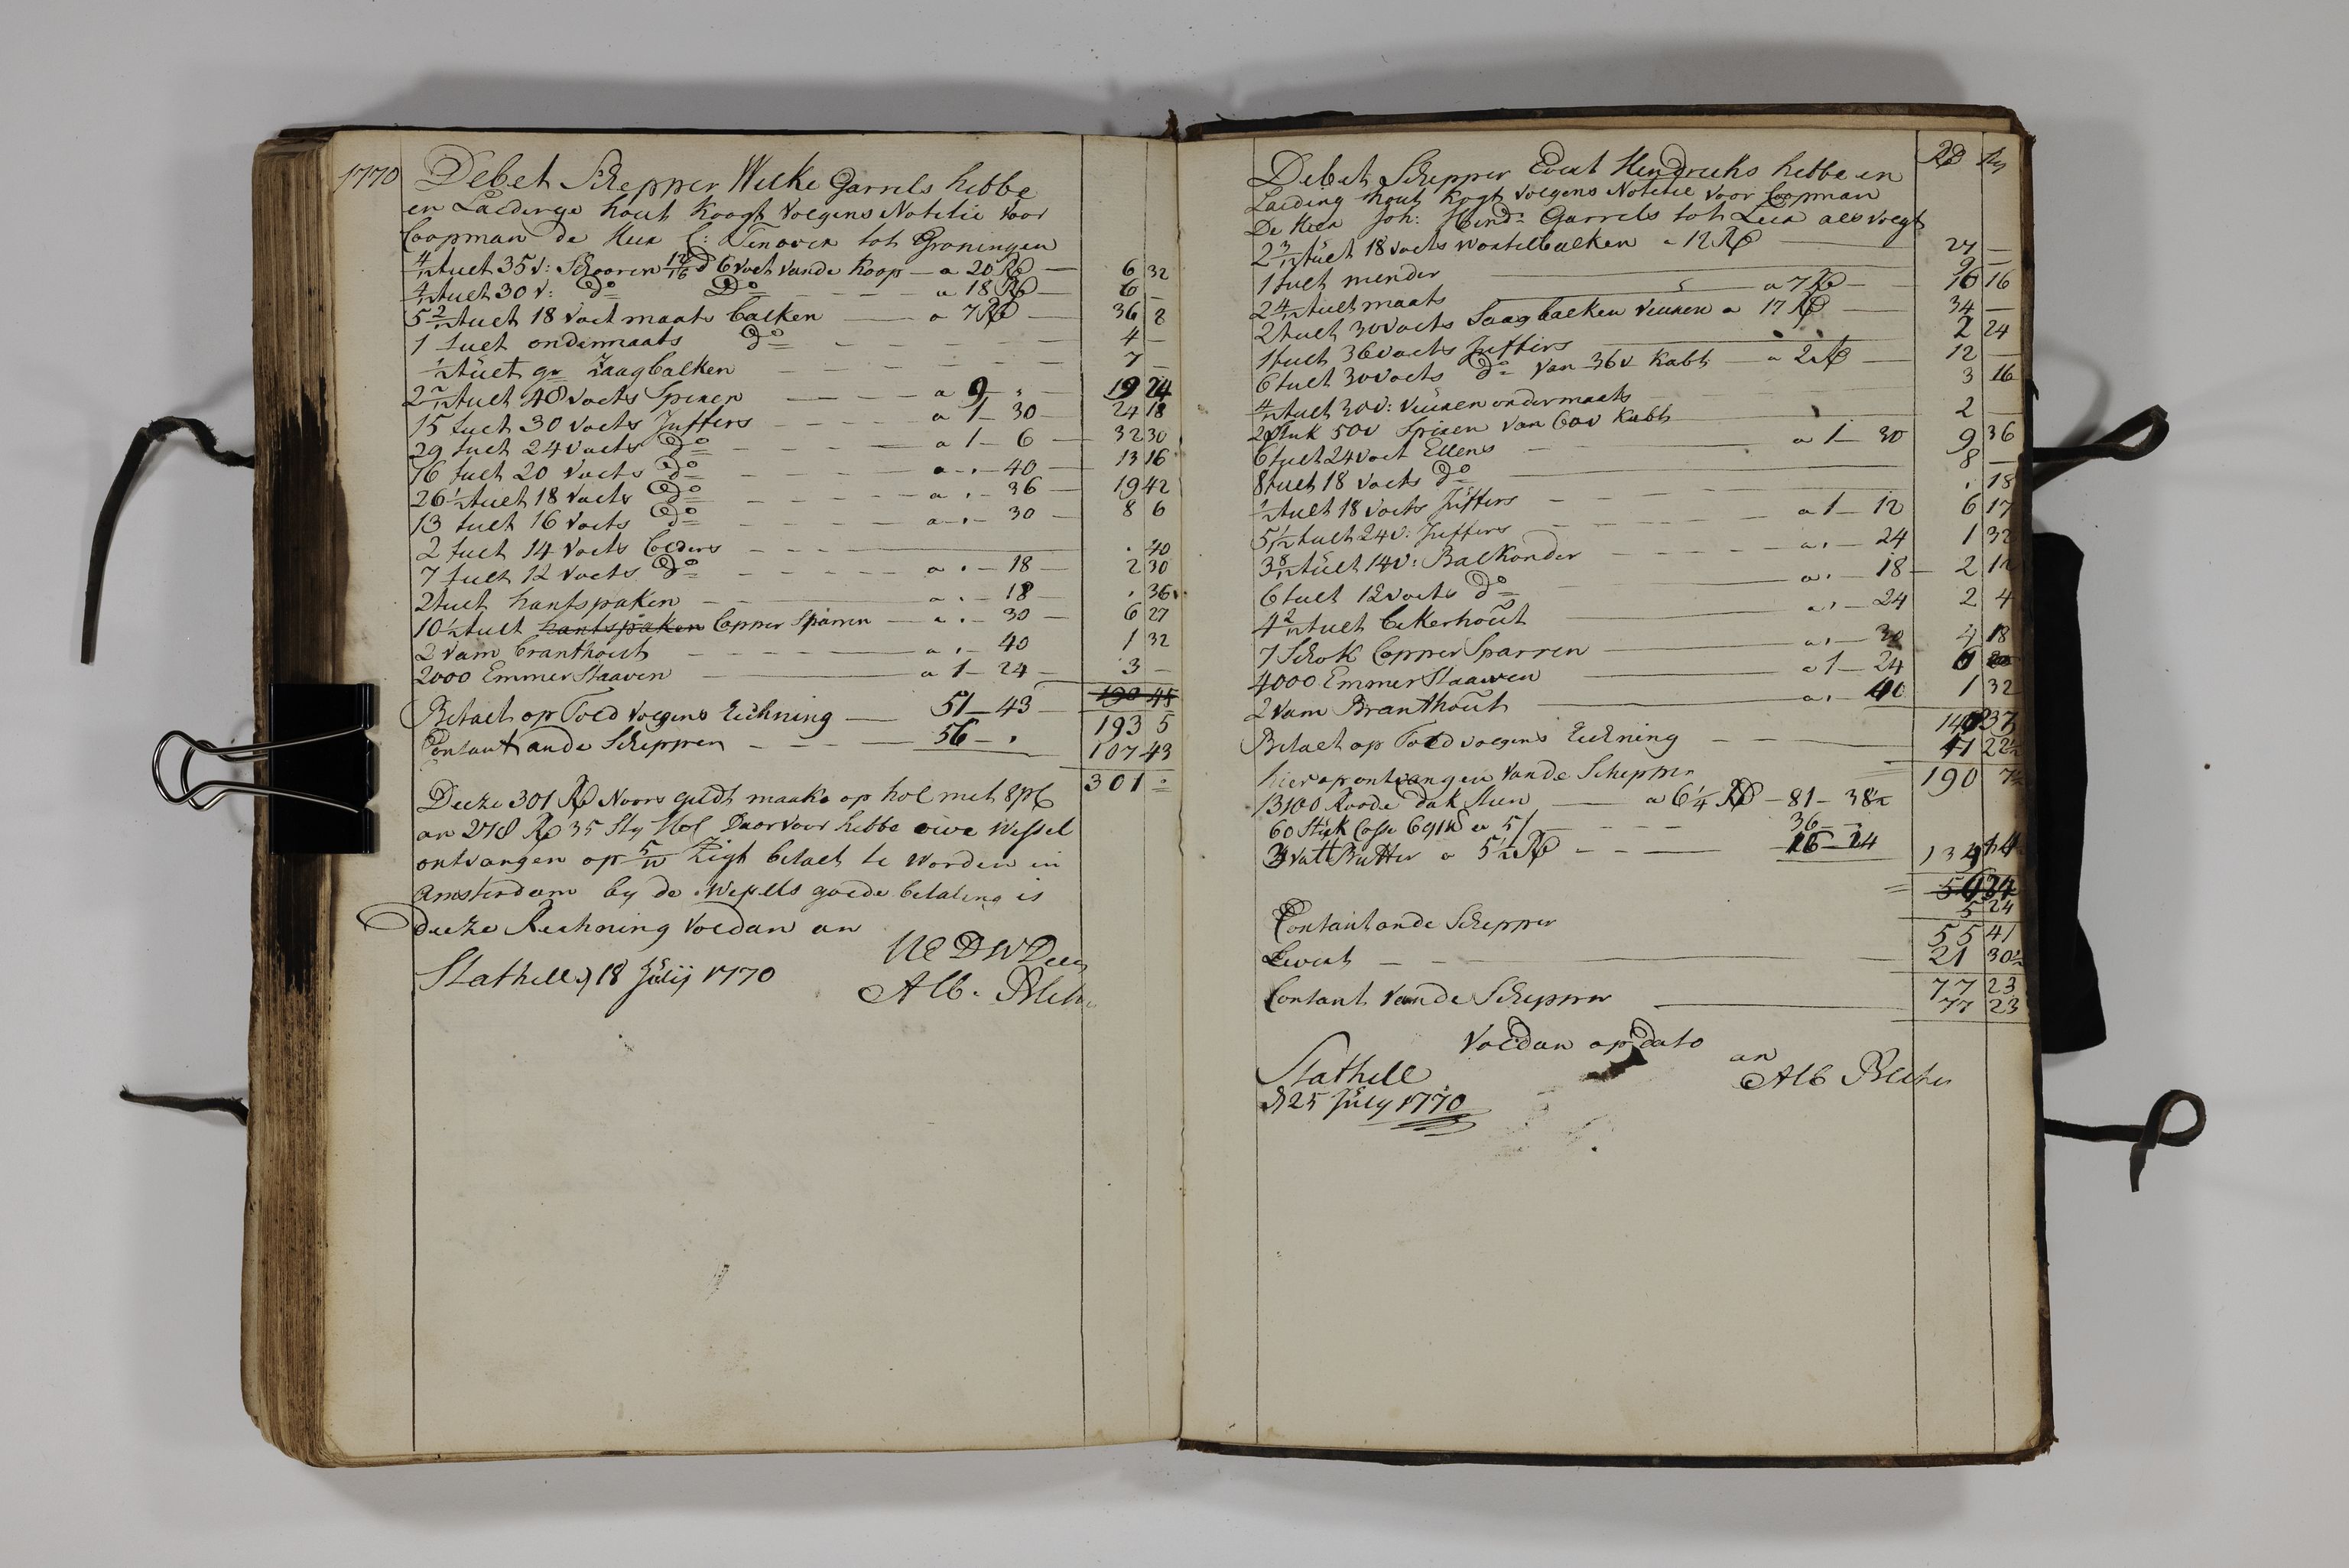 1770 Debet Schepper Wilke Garrels hebbe
en Laedinge hout koogt volgens Notitie voor
Coopman de Heer C: Tenoever tot Groningen
4/12 tuelt 35 v: Schooren 12/16 d 6 voet vande koop — a 20 R — 6 32
4/12 tuelt 30 v: Do Do — a 18 R — 6 —
5 2/12 tuelt 18 voet maats balken — a 7 R — 36 8
1 tuelt ondermaats do — 4 —
1/2 tüelt gr Zaagbalken — 7 —
tuelt 40 voets Spieren — a 9 — 19 24
15 tuelt 30 voets Juffers — a 1 — 30 — 24 18
29 tuelt 24 voets do — a 1 — 6 — 32 30
16 tuelt 20 voets do — a . — 40 — 13 16
26 1/2 tuelt 18 voets do — a . — 36 — 19 42
13 tuelt 16 voets do — a . — 30 — 8 6
2 tuelt 14 voets Colders — . 40
7 tuelt 12 voets do — a . — 18 — 2 30
2 tuelt hantspaken — a . — 18 — . 36
10 1/2 tuelt hantspaken Copper Sparren — a . — 30 — 6 27
2 vam branthout — a . — 40 1 32
2000 Emmer Staaven — a 1 — 24 — 3 —
Betaelt op Told volgens Reckning — 51 — 43 — 193 5
Contant ande Schepper — 56 — . 107 43
301 =
Deeze 301 R Noors geldt maake op hol met 8 pC
an 278 R 35 Sty Hol Daarvoor hebbe eive Wessel
ontvangen op Zigt betaelt te worden in
Amsterdam by de Wessels goede betaling is
deeze Reckning voldan an
UEDWDeen
Stathelle d 18 Jülij 1770
Alb. Blehr
Debet Schepper Evert Hendrecks hebbe en
Laeding hout kogt volgens Notitie voor Coopman
De Heer Joh: Hind: Garrels tot Leer als volgt
R Sty
2 3/12 tüelt 18 voets wontelbalken a 12 R — 27 —
1 tuelt minder — 9
2 4/12 tuelt maats — a 7 R — 16 16
2 tuelt 30 voets Saagbalken vueren a 17 R — 34 —
1 tuelt 36 voets Juffers — 2 24
6 tuelt 30 voets do van 36 v kabt a 2 R — 12 —
4/12 tuelt 30 v: vüeren ondermaats 3 16
2 stuk 50 v Spieren van 60 v kabt 2 —
6 tuelt 24 voet Ellens — a 1 — 30 9 36
8 tuelt 18 voets do — 8 —
1/2 tuelt 18 voets Jüffers — . 18
5 1/2 tuelt 24 v: Juffers — a 1 — 12 6 17
3 8/12 tüelt 14 v: Balkonder — a . — 24 1 32
6 tuelt 12 voets do — a . — 18 — 2 12
4 2/12 tuelt bekerhout — a . — 24 2 4
7 Schok Copper Sparren — a . — 30 4 18
4000 Emmer Staaven — a 1 — 24
2 vam Branthout — a . — 40 1 32
Betaelt op Told volgens Reckning — 41 22 1/2
hier op ontvangen vande Schepper 190 7 1/2
13100 Roode dak Steen — a 6 1/4 R — 81 — 38 1/2
60 Stük — 36 —
3 vatt Butter a 5 1/2 R — 16 — 24
5 24
Contant ande Schepper 55 41
Levert — 21 30 1/2
77 23
Contant vande Schepper — 77 23
Voldan op dato
Stathelle an
d 25 Jüly 1770 Alb Blehr